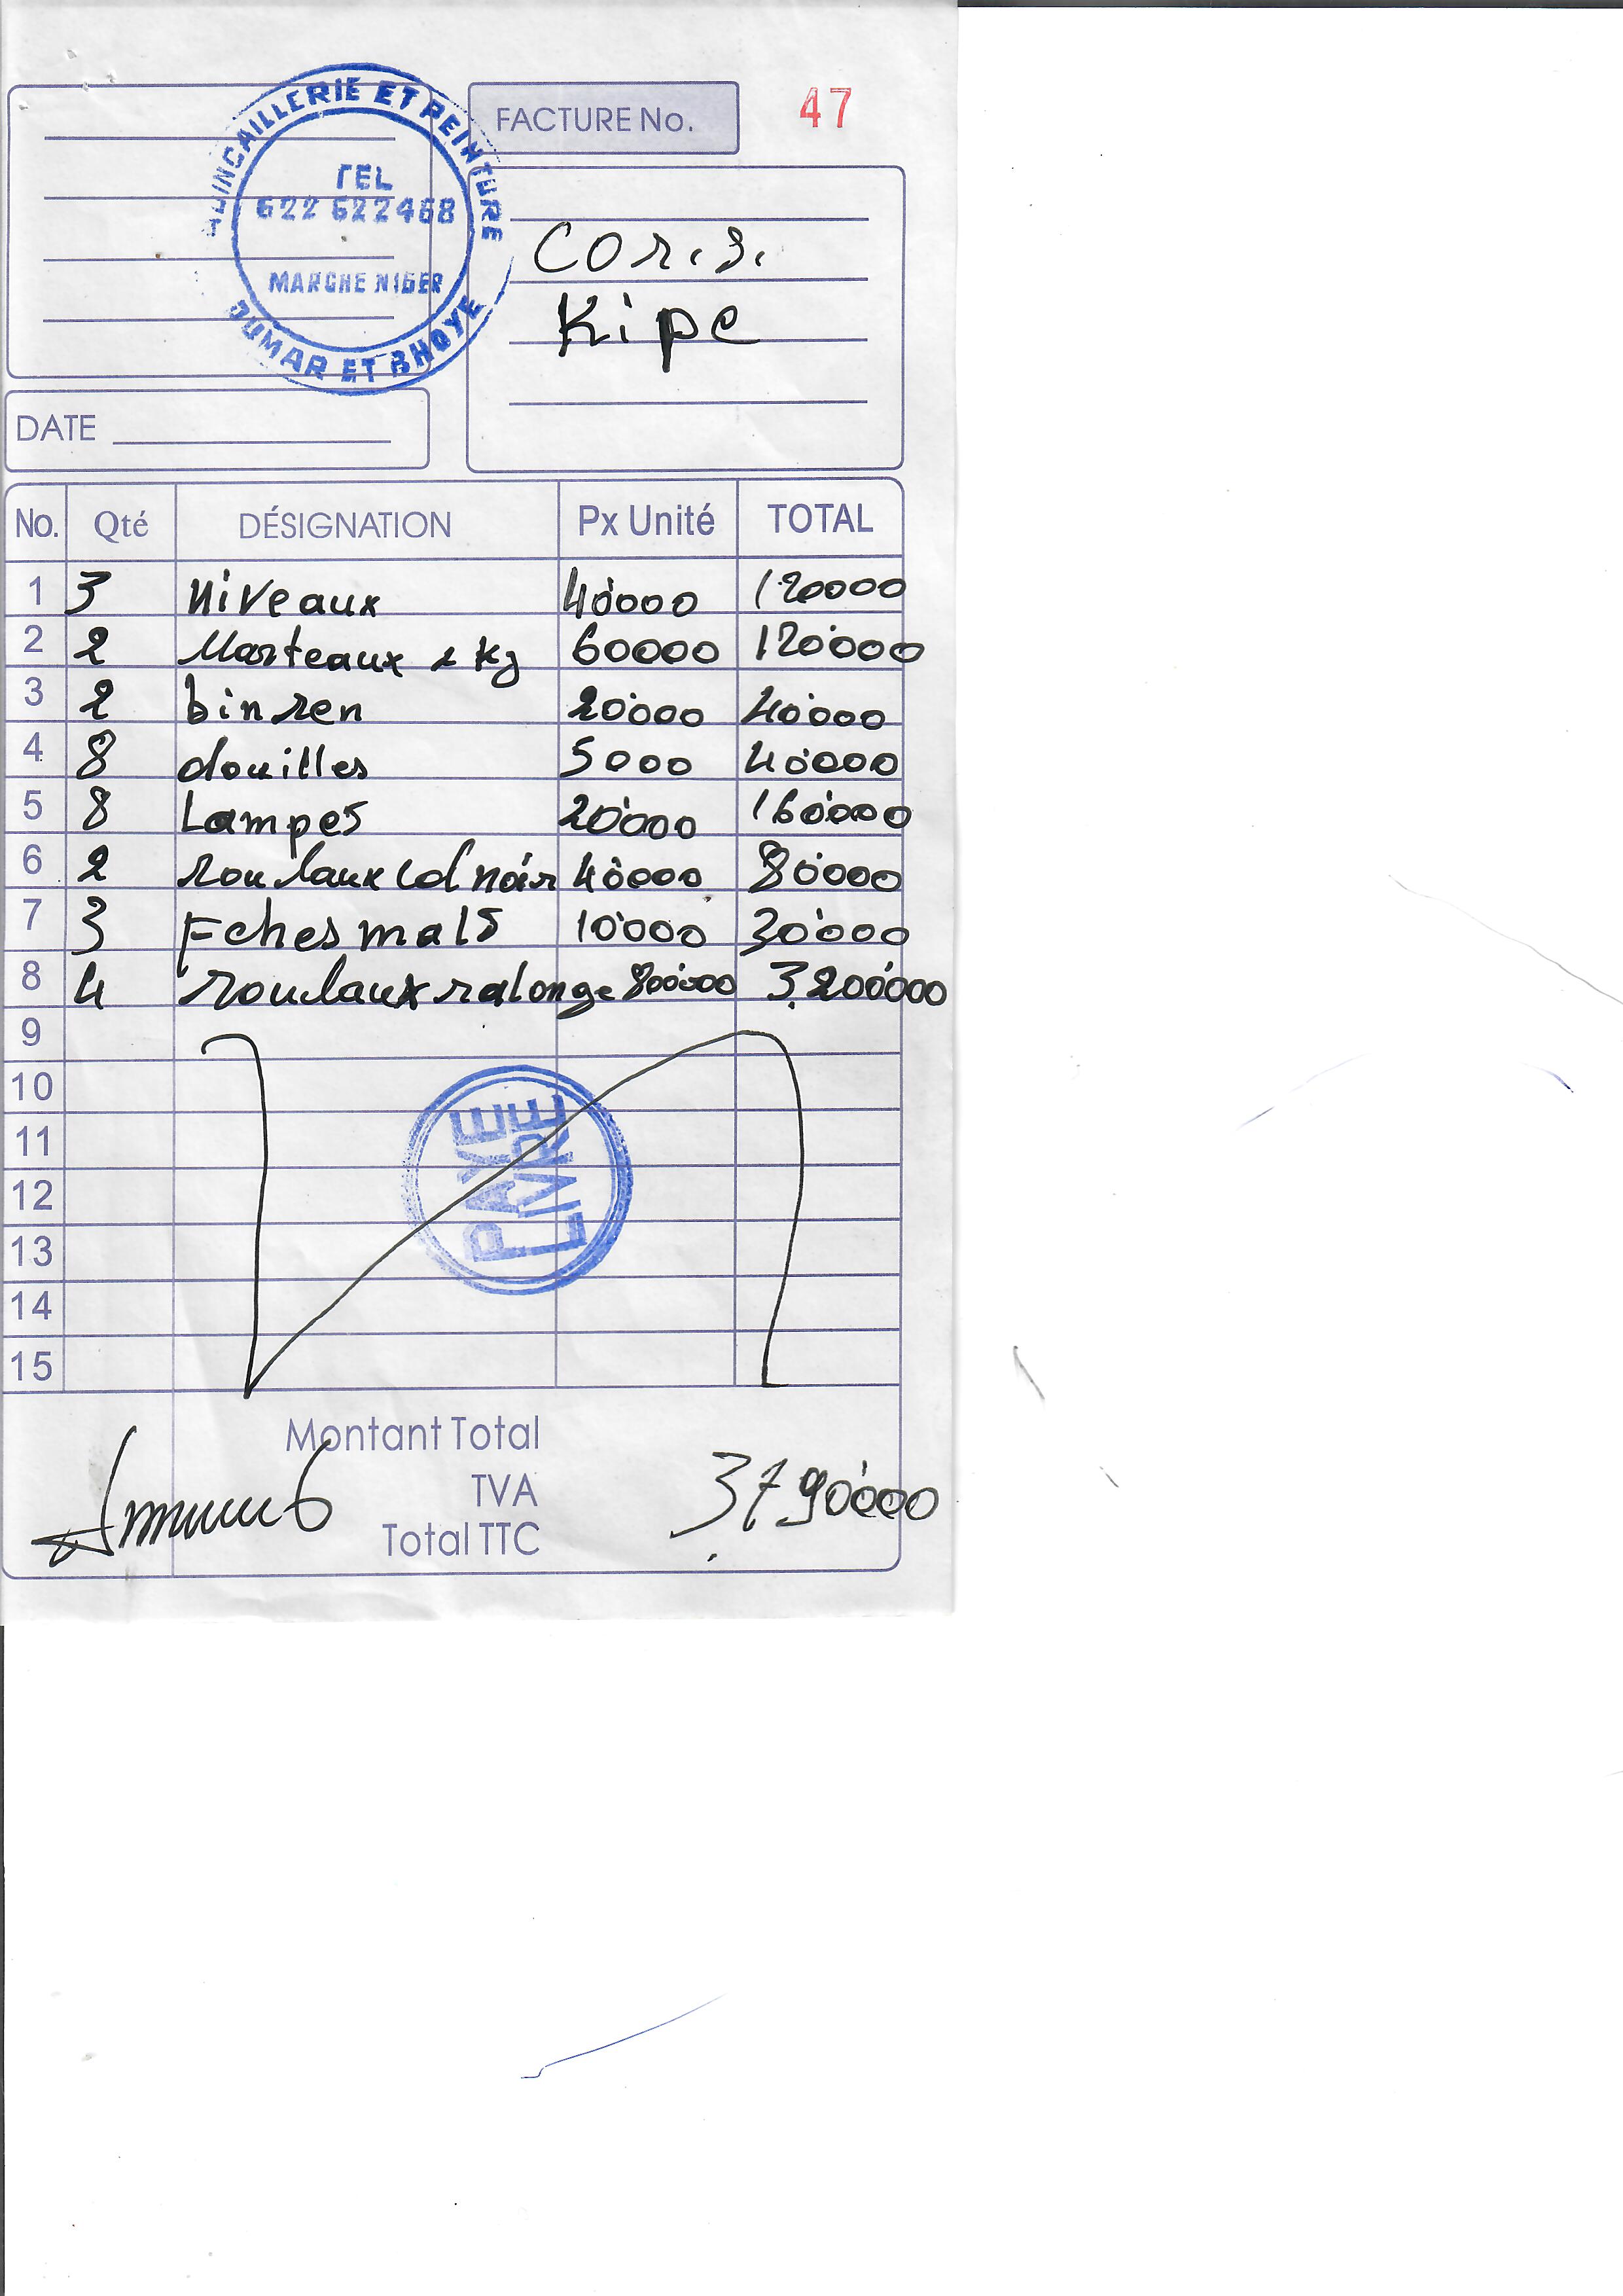 QUINCAILLERIE ET PEINTURE
TEL
622 622468
MARCHE NIGER
OUMAR ET BHOYE
FACTURE No. 47
CO.R.S.
Kipe
DATE
No. Qté DÉSIGNATION Px Unité TOTAL
1 3 Niveaux 40000 120000
2 2 Marteaux 2 kg 60000 120000
3 2 binren 20000 40000
4 8 douilles 5000 40000
5 8 Lampes 20000 160000
6 2 roulaux Col noir 40000 80000
7 3 Fches mals 10000 30000
8 4 roulaux ralonge 800000 3.200000
9
10
11
12
13
14
15
PAYE
LIVRE
Montant Total
TVA
Total TTC
3.790000